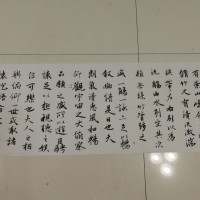 有崇山峻領
脩竹又有清流激湍
暎帶左右引以為
流觴曲水列坐其次
雖無絲竹管絃之
盛一觴一詠亦足以暢
叙幽情是日也天
朗氣清惠風和暢
仰觀宇宙之大俯察
品類之盛所以遊目騁
懷足以極視聽之娛
信可樂也夫人之相
與俯仰一世或取諸
懷抱悟言